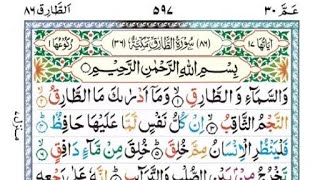 عَمَّ ٣٠ ٥٩٧ اَلطَّارِق ٨٦
اٰيَاتُهَا ١٧ (٨٦) سُوْرَةُ الطَّارِقِ مَكِّيَّةٌ (٣٦) رُكُوْعُهَا ١
بِسْمِ اللّٰهِ الرَّحْمٰنِ الرَّحِيْمِ
وَالسَّمَآءِ وَالطَّارِقِ ۙ﴿۱﴾ وَمَاۤ اَدْرٰىكَ مَا الطَّارِقُ ۙ﴿۲﴾
النَّجْمُ الثَّاقِبُ ۙ﴿۳﴾ اِنْ كُلُّ نَفْسٍ لَّمَّا عَلَيْهَا حَافِظٌ ؕ﴿۴﴾
فَلْيَنْظُرِ الْاِنْسَانُ مِمَّ خُلِقَ ؕ﴿۵﴾ خُلِقَ مِنْ مَّآءٍ دَافِقٍ ۙ﴿۶﴾
يَّخْرُجُ مِنْۢ بَيْنِ الصُّلْبِ وَالتَّرَآئِبِ ؕ﴿۷﴾ اِنَّهٗ عَلٰى رَجْعِهٖ